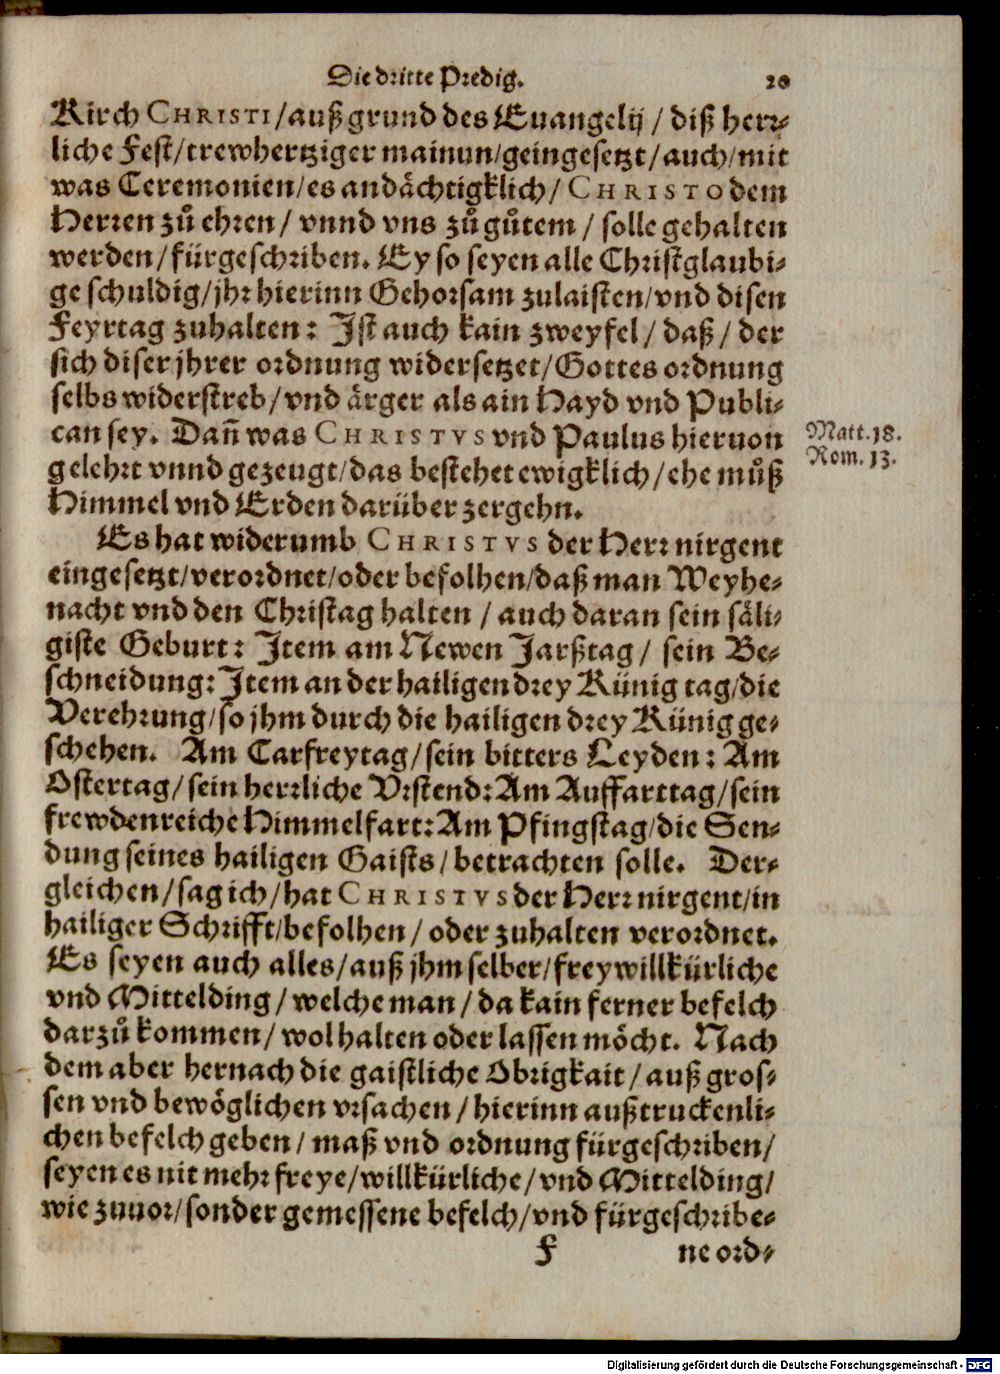 Die dritte Predig. 20
Kirch CHRISTI/auß grund des Euangelij/ diß herꝛ-
liche Fest/trewhertziger mainun/geingesetzt/auch/mit
was Ceremonien/es andächtigklich/ CHRISTO dem
Herꝛen zů ehꝛen/ vnnd vns zů gůtem/ solle gehalten
werden/fürgeschꝛiben. Ey so seyen alle Christglaubi-
ge schuldig/jhꝛ hierinn Gehoꝛsam zulaisten/vnd disen
Feyrtag zuhalten: Ist auch kain zweyfel/ daß/ der
sich diser jhrer oꝛdnung widersetzet/Gottes oꝛdnung
selbs widerstreb/vnd ärger als ain Hayd vnd Publi-
can sey. Dañ was CHRISTVS vnd Paulus hieruon
gelehꝛt vnnd gezeugt/das bestehet ewigklich/ehe můß
Himmel vnd Erden darüber zergehn.
Matt. 18.
Rom. 13.
Es hat widerumb CHRISTVS der Herꝛ nirgent
eingesetzt/veroꝛdnet/oder befolhen/daß man Weyhe-
nacht vnd den Christag halten/ auch daran sein säli-
giste Geburt: Item am Newen Jarßtag/ sein Be-
schneidung: Item an der hailigen dꝛey Künig tag/die
Verehꝛung/so jhm durch die hailigen dꝛey Künig ge-
schehen. Am Carfreytag/sein bitters Leyden: Am
Ostertag/sein herꝛliche Vꝛstend: Am Auffarttag/sein
frewdenreiche Himmelfart: Am Pfingstag/die Sen-
dung seines hailigen Gaists/betrachten solle. Der-
gleichen/sag ich/hat CHRISTVS der Herꝛ nirgent/in
hailiger Schꝛifft/befolhen/ oder zuhalten veroꝛdnet.
Es seyen auch alles/auß jhm selber/freywillkürliche
vnd Mittelding/welche man/da kain ferner befelch
darzů kommen/ wol halten oder lassen möcht. Nach
dem aber hernach die gaistliche Obꝛigkait/auß gros-
sen vnd bewöglichen vꝛsachen/hierinn außtruckenli-
chen befelch geben/ maß vnd oꝛdnung fürgeschꝛiben/
seyen es nit mehꝛ freye/willkürliche/vnd Mittelding/
wie zuuoꝛ/sonder gemessene befelch/vnd fürgeschꝛibe-
F ne oꝛd-
Digitalisierung gefördert durch die Deutsche Forschungsgemeinschaft - DFG